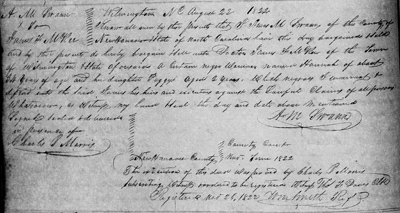 A M Swann
Wilmington N C August 22 1822
to
James F McRee
Know all men by these presents that I of the County of
New Hanover State of North Carolina have this day bargained & Sold
and by these presents do hereby bargain & Sell unto Doctor James F McRee of the Town
of Wilmington & State aforesaid a Certain negro Woman named Hannah of about
years of age and her daughter Peggy aged 2 years. Which negroes I warrant to
defend unto the said James his heirs and executors against the lawful Claims of all persons
Whatsoever, as Witness my hand & Seal the day and date above mentioned
Signed Sealed & delivered
in presence of
A M Swann
Charles J Morris
County Court
New Hanover County Nov. Term 1822
The execution of this deed was proved by Charles J Morris
Subscribing Witness ordered to be registered
Registered Nov 1822